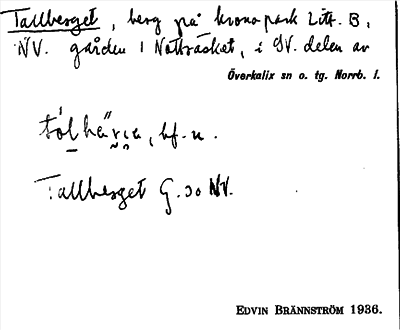 Tallberget, berg på kronopark Litt. B,
NV. gården 1 Natträsket, i SV. delen av
Överkalix sn o. tg. Norrb. l.
bf. n.
Tallberget G.30 NV.
EDVIN BRÄNNSTRÖM 1936.